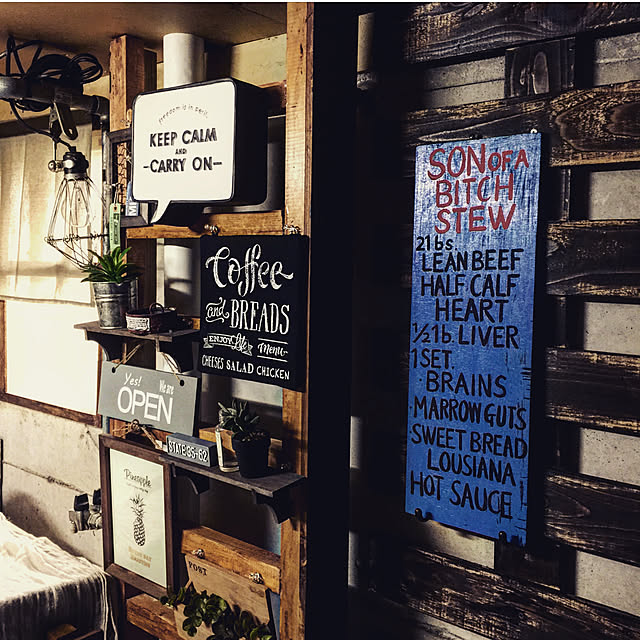 freedom is in peril.
KEEP CALM
AND
-CARRY ON-
Coffee
and BREADS
ENJOY Life Menu
CHEESES SALAD CHICKEN
Yes! We are
OPEN
STATE 35-62
Pineapple
PORT
SON OF A
BITCH
STEW
2 lbs
LEAN BEEF
HALF CALF
HEART
1/2 lb LIVER
1 SET
BRAINS
MARROW GUTS
SWEET BREAD
LOUSIANA
HOT SAUCE